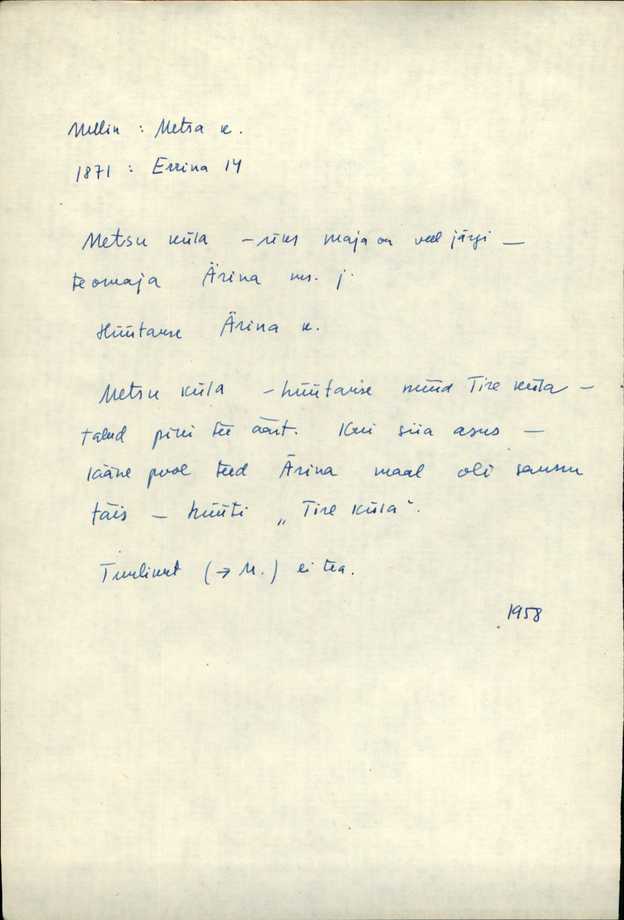 Mellin : Metsa k.
1871 : Errina 14
Metsu küla – üks maja on veel järgi –
teomaja Ärina ms. j.
Hüütakse Ärina k.
Metsu küla – hüütakse nüüd Tire küla –
talud piki tee äärt. Kui siia asus –
kääne pool teed Ärina maal oli saunu
täis – hüüti „Tire küla".
(→ M.) ei tea.
1958